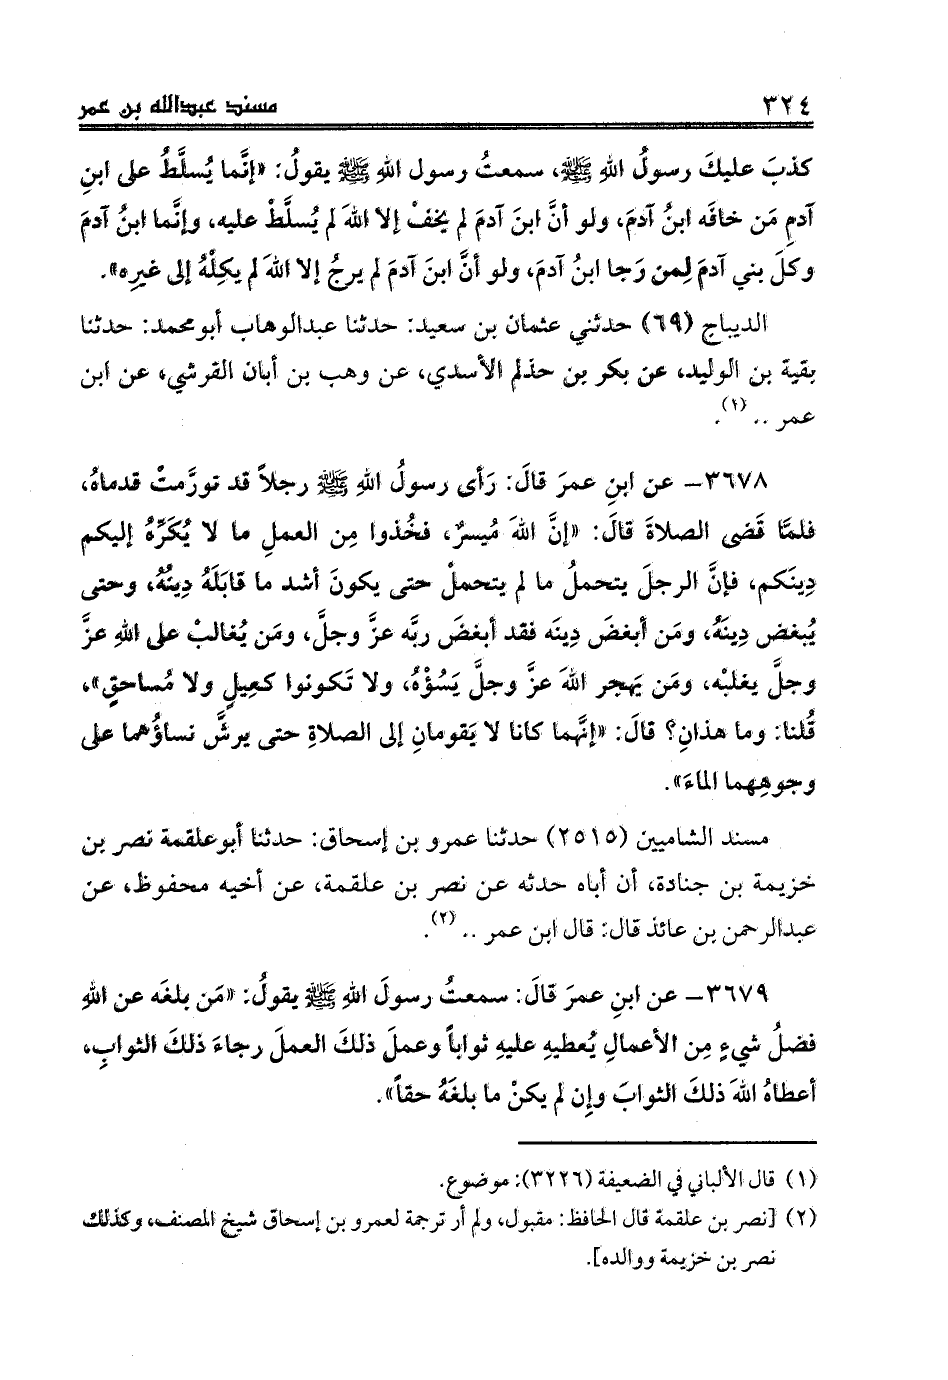 ٣٢٤ مسند عبدالله بن عمر
كذبَ عليكَ رسولُ اللهِ ﷺ، سمعتُ رسول اللهِ ﷺ يقولُ: «إنَّما يُسلَّطُ على ابنِ
آدمِ مَن خافَه ابنُ آدمَ، ولو أنَّ ابنَ آدمَ لم يخفْ إلا اللهَ لم يُسلَّطْ عليه، وإنَّما ابنُ آدمَ
وكلَ بني آدمَ لِمن رَجا ابنُ آدمَ، ولو أنَّ ابنَ آدمَ لم يرجُ إلا اللهَ لم يكِلْهُ إلى غيرِه».
الديباج (٦٩) حدثني عثمان بن سعيد: حدثنا عبدالوهاب أبومحمد: حدثنا
بقية بن الوليد، عن بكر بن حذلم الأسدي، عن وهب بن أبان القرشي، عن ابن
عمر .. (١).
٣٦٧٨– عن ابنِ عمرَ قالَ: رَأى رسولُ اللهِ ﷺ رجلاً قد تورَّمتْ قدماهُ،
فلمَّا قَضى الصلاةَ قالَ: «إنَّ اللهَ مُيسرٌ، فخُذوا مِن العملِ ما لا يُكَرِّهُ إليكم
دِينَكم، فإنَّ الرجلَ يتحملُ ما لم يتحملْ حتى يكونَ أشد ما قابلَهُ دِينُهُ، وحتى
يُبغض دِينَهُ، ومَن أبغضَ دِينَه فقد أبغضَ ربَّه عزَّ وجلَّ، ومَن يُغالبْ على اللهِ عزَّ
وجلَّ يغلبْه، ومَن يَهجر اللهَ عزَّ وجلَّ يَسُؤْهُ، ولا تَكونوا كعِيلٍ ولا مُساحقٍ»،
قُلنا: وما هذانِ؟ قالَ: «إنَّهما كانا لا يَقومانِ إلى الصلاةِ حتى يرشَّ نساؤُهما على
وجوهِهما الماءَ».
مسند الشاميين (٢٥١٥) حدثنا عمرو بن إسحاق: حدثنا أبوعلقمة نصر بن
خزيمة بن جنادة، أن أباه حدثه عن نصر بن علقمة، عن أخيه محفوظ، عن
عبدالرحمن بن عائذ قال: قال ابن عمر .. (٢).
٣٦٧٩– عن ابنِ عمرَ قالَ: سمعتُ رسولَ اللهِ ﷺ يقولُ: «مَن بلغَه عن اللهِ
فضلُ شيءٍ مِن الأعمالِ يُعطيهِ عليهِ ثواباً وعملَ ذلكَ العملَ رجاءَ ذلكَ الثوابِ،
أعطاهُ اللهَ ذلكَ الثوابَ وإِن لم يكنْ ما بلغَهُ حقاً».
(١) قال الألباني في الضعيفة (٣٢٢٦): موضوع.
(٢) [نصر بن علقمة قال الحافظ: مقبول، ولم أر ترجمة لعمرو بن إسحاق شيخ المصنف، وكذلك
نصر بن خزيمة ووالده].